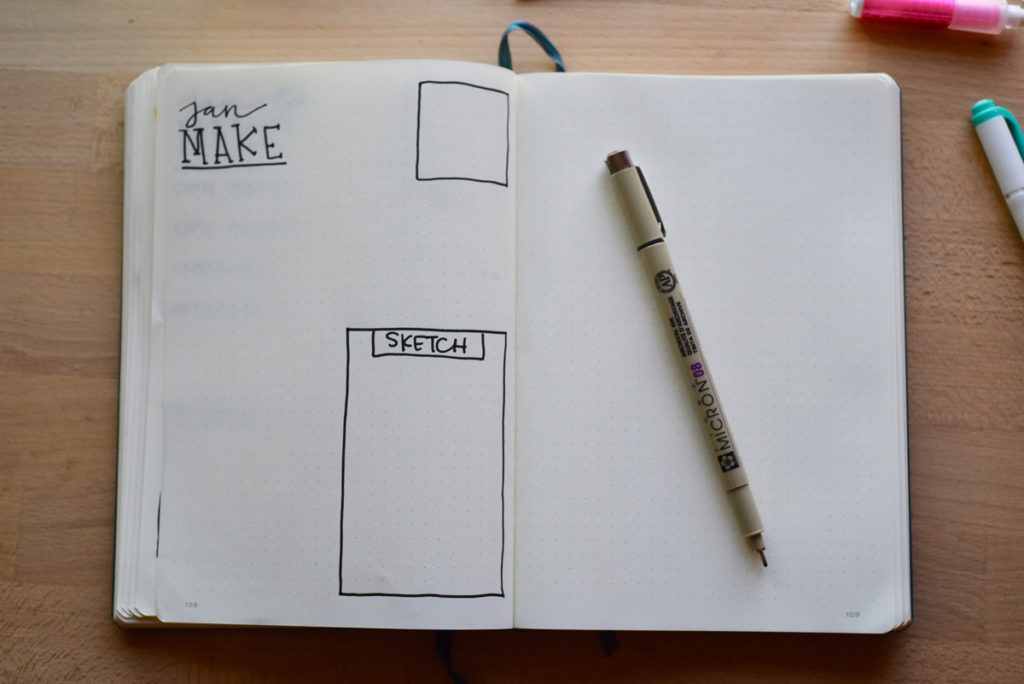 jan
MAKE
SKETCH
MICRON 08
108
109